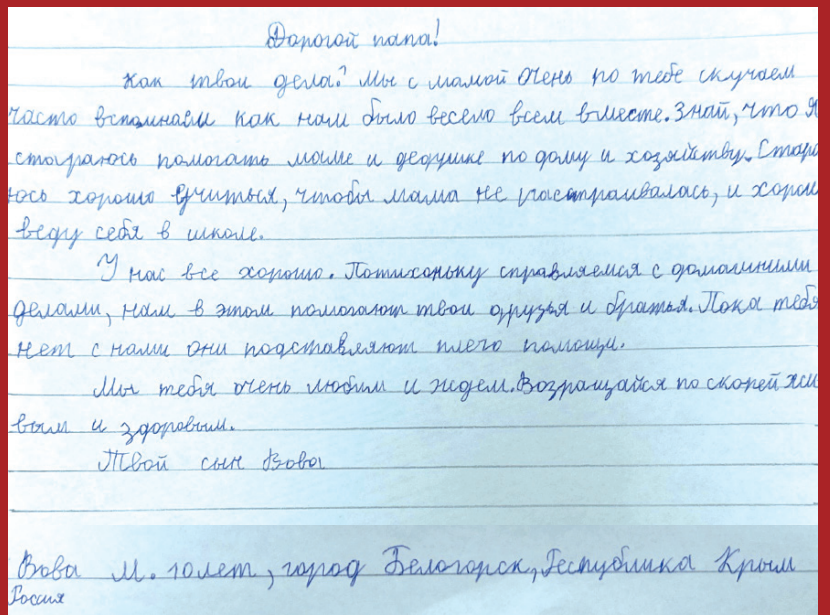 Дорогой папа!
Как твои дела? Мы с мамой очень по тебе скучаем
часто вспоминаем как нам было весело всем вместе. Знай, что я
стараюсь помогать маме и дедушке по дому и хозяйству. Стара
юсь хорошо учиться, чтобы мама не расстраивалась, и хорош
веду себя в школе.
У нас все хорошо. Потихоньку справляемся с домашними
делами, нам в этом помогают твои друзья и братья. Пока тебя
нет с нами они подставляют плечо помощи.
Мы тебя очень любим и ждем. Возращайся по скорей жи
вым и здоровым.
Твой сын Вова
Вова М. 10 лет, город Белогорск, Республика Крым
Россия